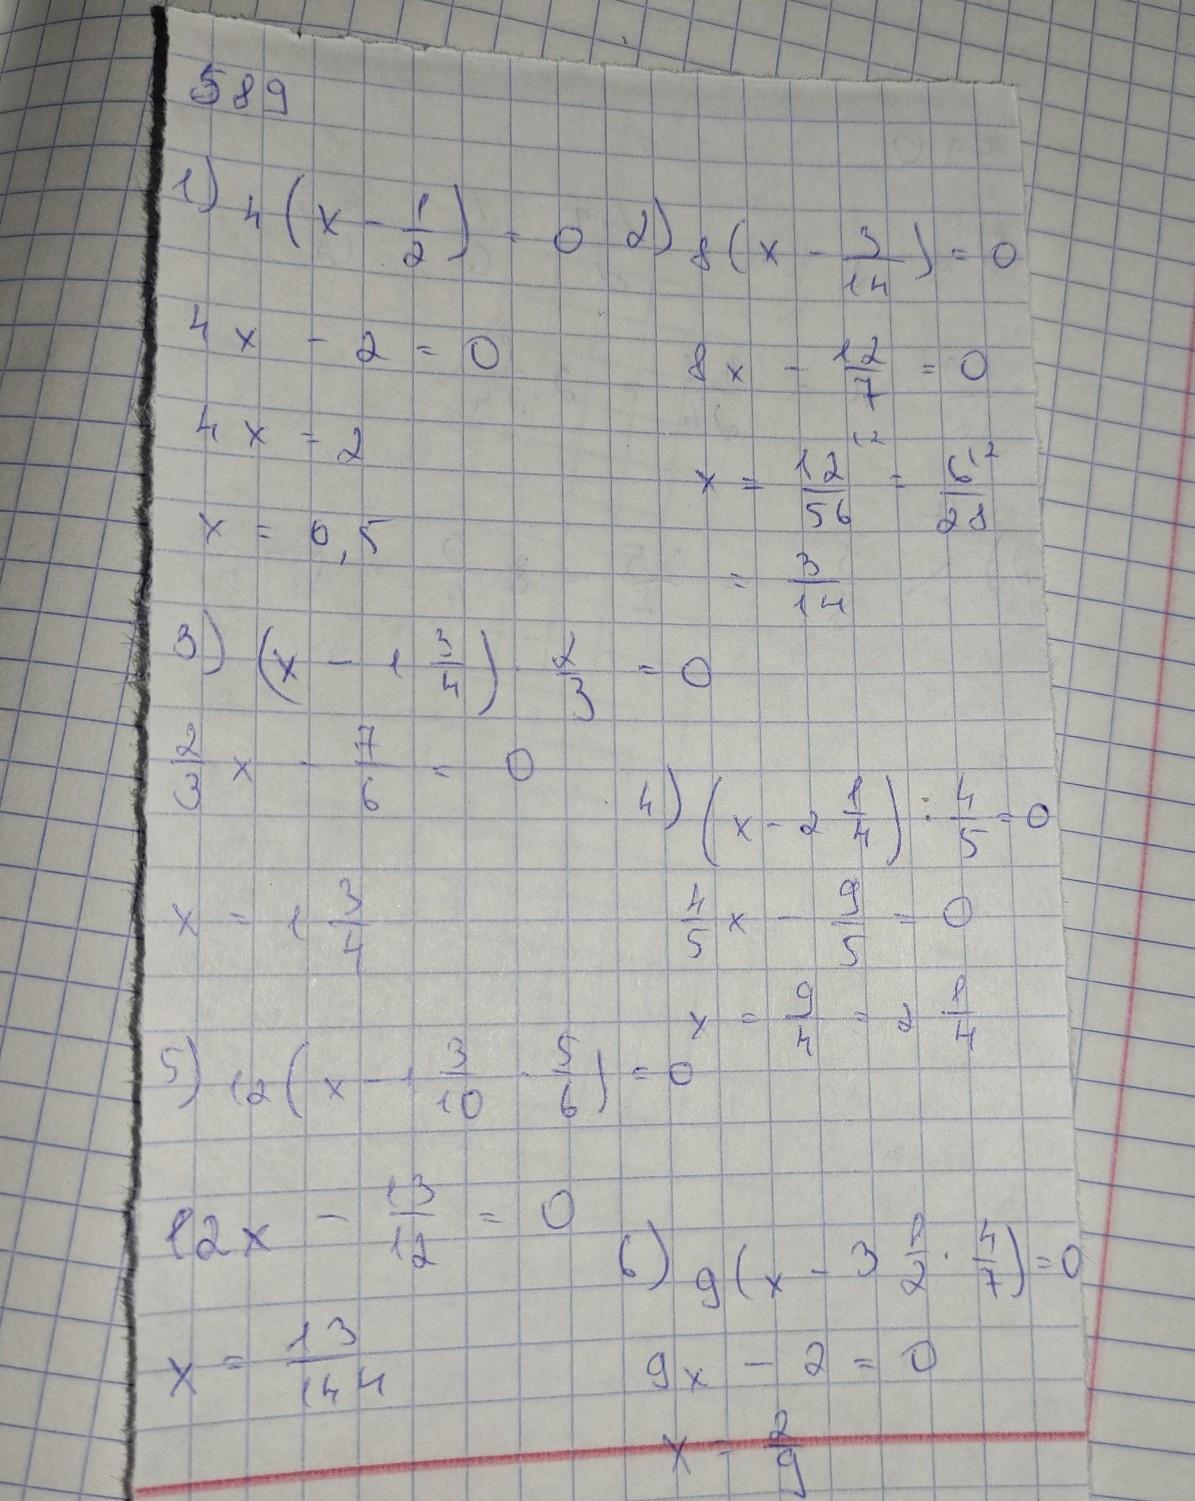 589
1) 4(x - 1/2) = 0
4x - 2 = 0
4x = 2
x = 0,5
2) 8(x - 3/14) = 0
8x - 12/7 = 0
x = 12/56 12 = 6/28 12
= 3/14
3) (x - 1 3/4) · 2/3 = 0
2/3 x - 7/6 = 0
x = 1 3/4
4) (x - 2 1/4) : 4/5 = 0
4/5 x - 9/5 = 0
x = 9/4 = 2 1/4
5) 12(x - 1 3/10 · 5/6) = 0
12x - 13/12 = 0
x = 13/144
6) 9(x - 3 1/2 · 4/7) = 0
9x - 2 = 0
x = 2/9